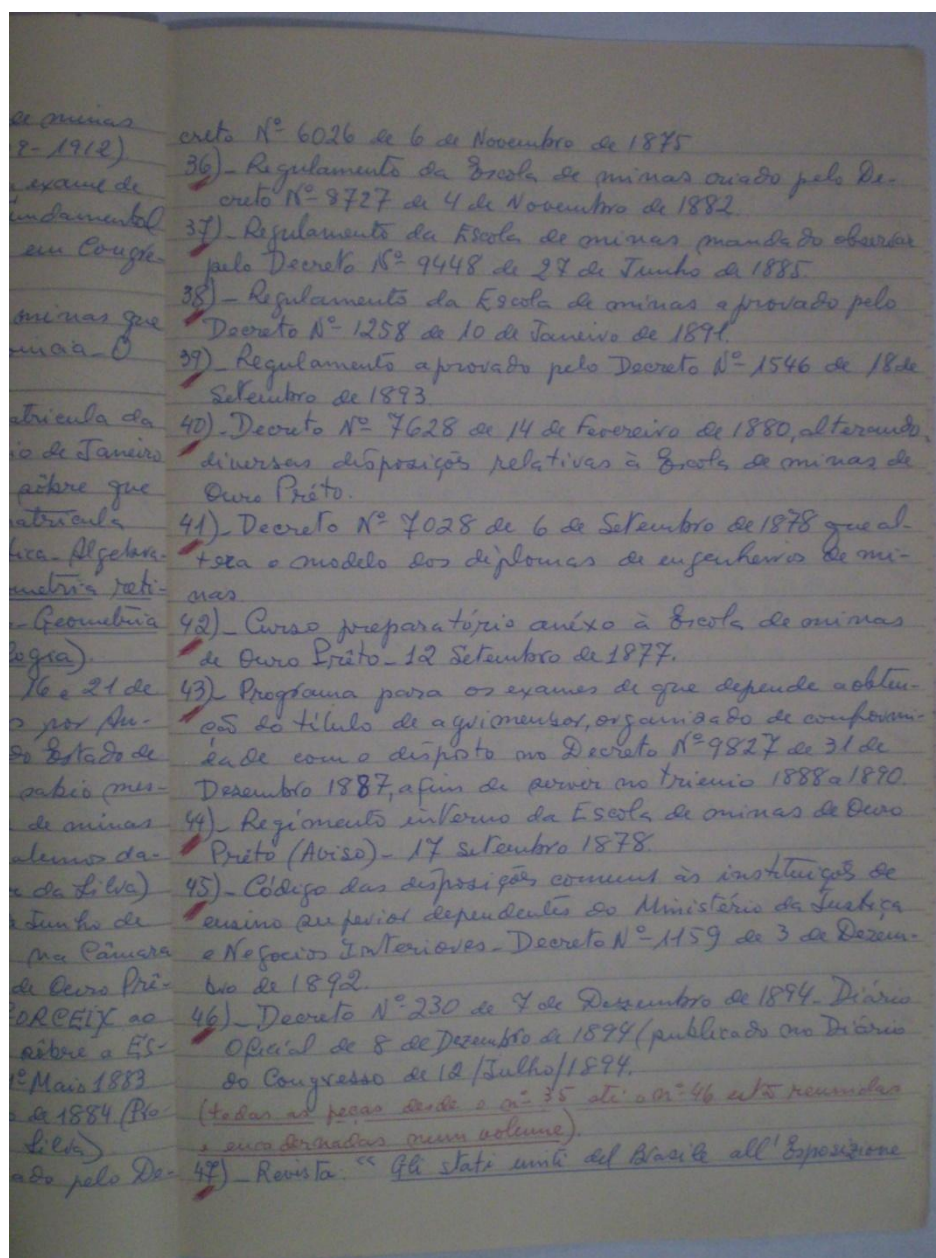 de minas
2-1912)
exame de
fundamental
em Congre-
minas que
O
atricula da
io de Janeiro
sôbre que
atricula
tica - Algebra -
ometria reti-
- Geometria
logia).
16 e 21 de
s por An-
do Estado de
sabio mes-
de minas
da-
da Silva)
Junho de
na Câmara
de Ouro Prê-
GORCEIX ao
sôbre a Es-
1º Maio 1883
de 1884 (Pro-
Silva)
ado pelo De-
creto Nº 6026 de 6 de Novembro de 1875
36) - Regulamento da Escola de minas criado pelo De-
creto Nº 8727 de 4 de Novembro de 1882.
37) - Regulamento da Escola de minas mandado observar
pelo Decreto Nº 9448 de 27 de Junho de 1885.
38) - Regulamento da Escola de minas aprovado pelo
Decreto Nº 1258 de 10 de Janeiro de 1891.
39) - Regulamento aprovado pelo Decreto Nº 1546 de 18 de
Setembro de 1893.
40) - Decreto Nº 7628 de 14 de Fevereiro de 1880, alterando,
diversas disposiçõs relativas à Escola de minas de
Ouro Prêto.
41) - Decreto Nº 7028 de 6 de Setembro de 1878 que al-
tera o modelo dos diplomas de engenheiros de mi-
nas.
42) - Curso preparatório anéxo à Escola de minas
de Ouro Prêto - 12 Setembro de 1877.
43) - Programa para os exames de que depende a obten-
ção do título de agrimensor, organisado de conformi-
dade com o disposto no Decreto Nº 9827 de 31 de
Desembro 1887, afim de servir no trienio 1888 a 1890.
44) - Regimento interno da Escola de minas de Ouro
Prêto (Aviso) - 17 setembro 1878.
45) - Código das disposiçõs comuns às instituiçõs de
ensino superior dependentes do Ministério da Justiça
e Negocios Interiores - Decreto Nº 1159 de 3 de Dezem-
bro de 1892.
46) - Decreto Nº 230 de 7 de Dezembro de 1894 - Diário
Oficial de 8 de Dezembro de 1894 (publicado no Diário
do Congresso de 12/Julho/1894.
(todas as peças desde o nº 35 até o nº 46 estão reunidas
e encadernadas num volume).
47) - Revista: "Gli stati uniti del Brasile all'Esposizione